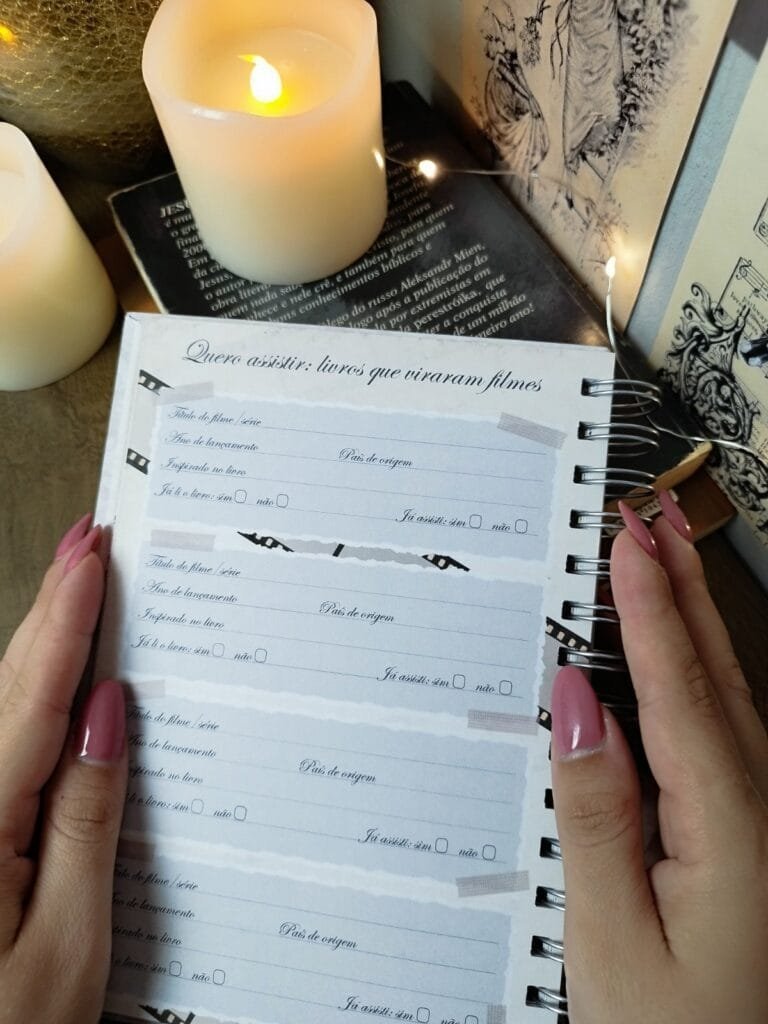 JESU
é mu
o gra
final
200
da ci
Jesus
o autor
obra litera
quem nada sab
conhece e nele crê, e também para quem
tem conhecimentos bíblicos e
Cristo, para quem
do russo Aleksandr Mien,
logo após a publicação do
por extremistas em
perestróika, que
a conquista
de um milhão
meiro ano!
Quero assistir: livros que viraram filmes
Título do filme/série
Ano de lançamento País de origem
Inspirado no livro
Já li o livro: sim não Já assisti: sim não
Título do filme/série
Ano de lançamento País de origem
Inspirado no livro
Já li o livro: sim não Já assisti: sim não
Título do filme/série
Ano de lançamento País de origem
Inspirado no livro
li o livro: sim não Já assisti: sim não
ulo do filme/série
no de lançamento País de origem
pirado no livro
li o livro: sim não Já assisti: sim não